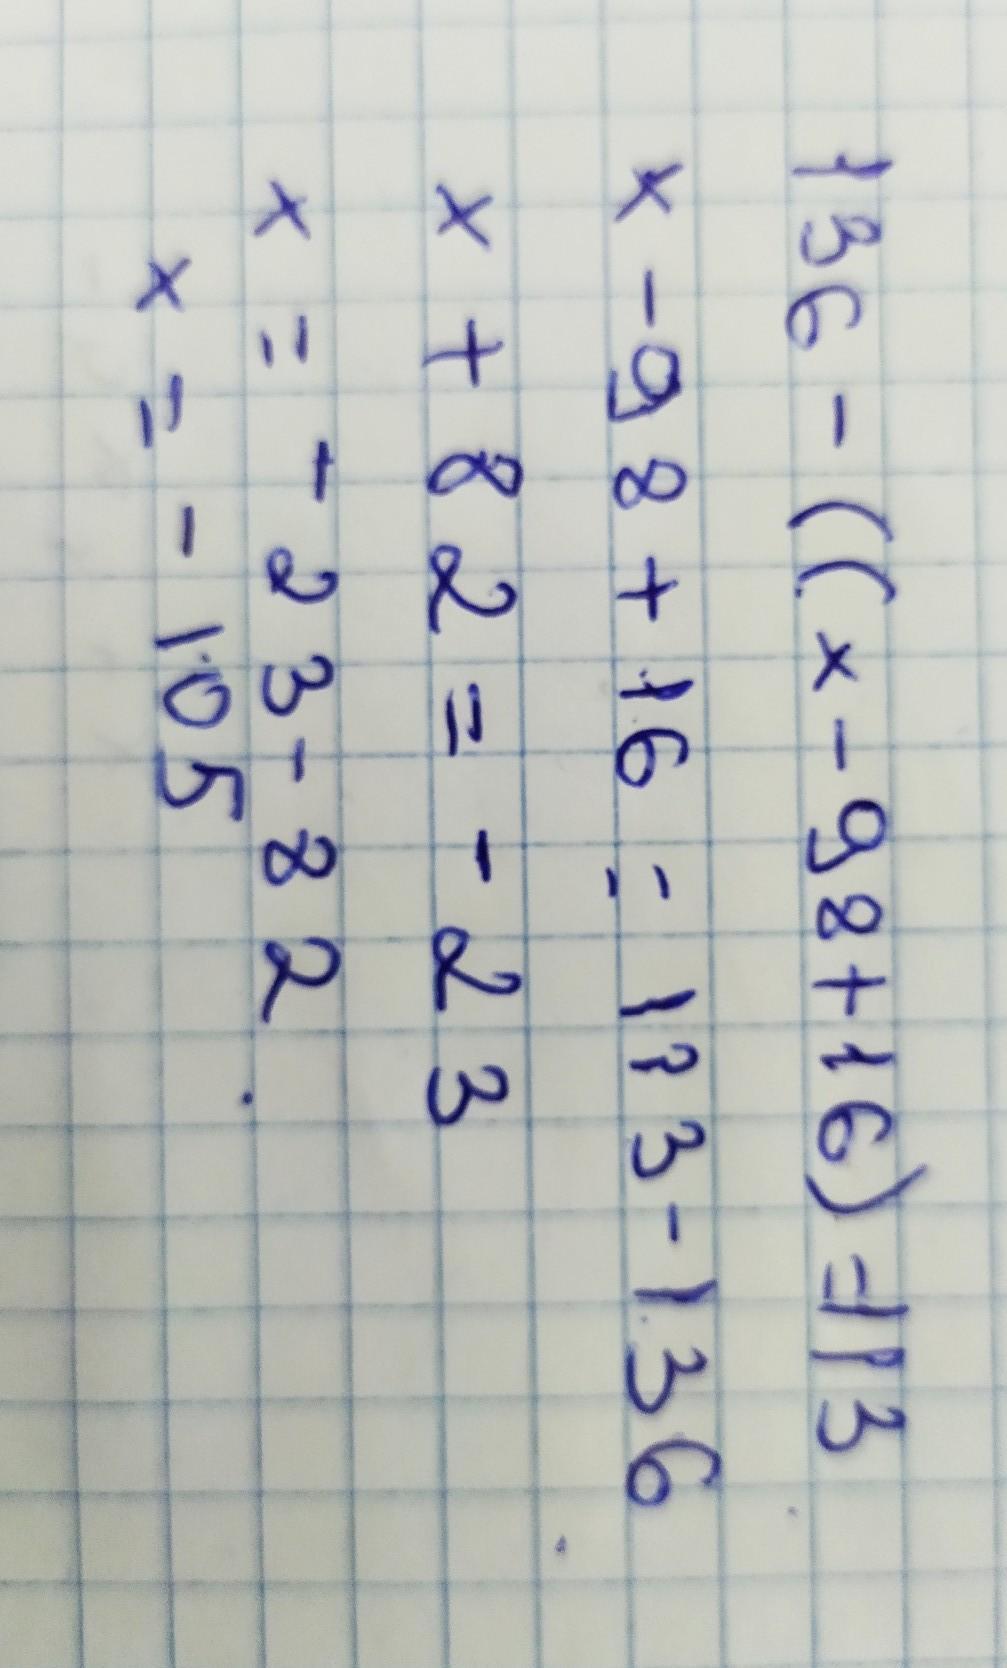 136 - ((x - 98 + 16) = 113
x - 98 + 16 = 113 - 136
x + 82 = - 23
x = - 23 - 82
x = - 105